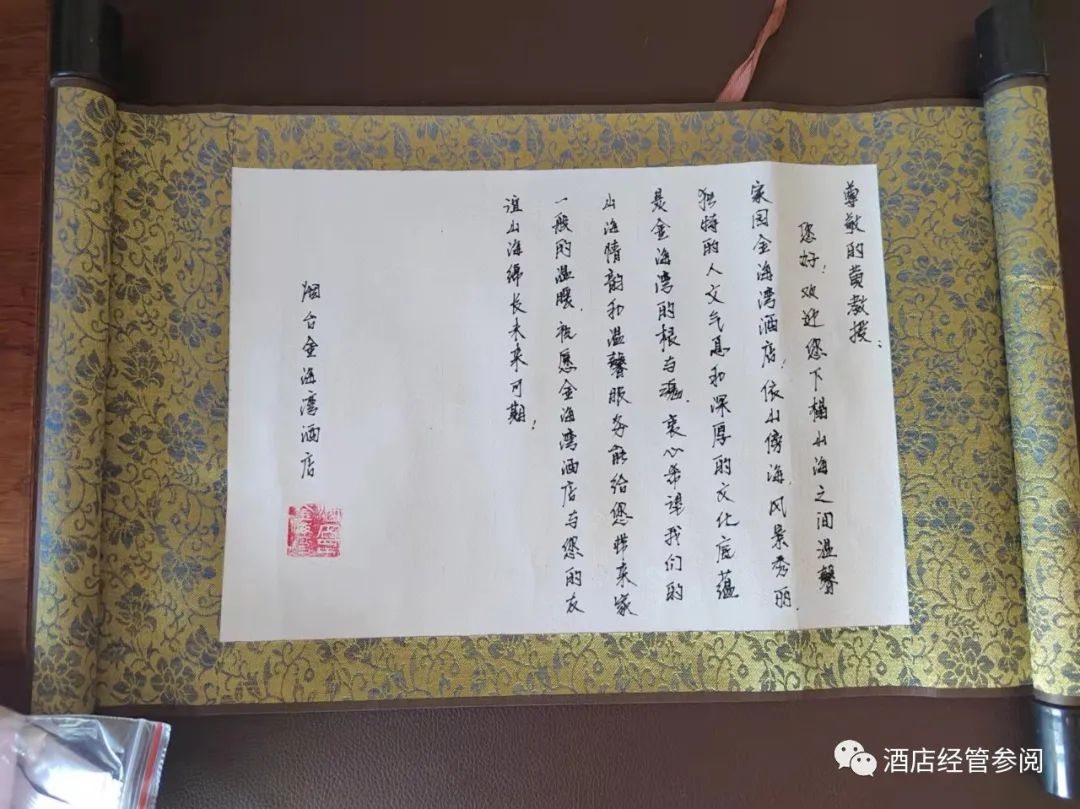 尊敬的黄教授：
您好！欢迎您下榻山海之间温馨
家园金海湾酒店，依山傍海，风景秀丽，
独特的人文气息和深厚的文化底蕴
是金海湾的根与魂，衷心希望我们的
山海情韵和温馨服务能给您带来家
一般的温暖，祝愿金海湾酒店与您的友
谊山海绵长未来可期！
烟台金海湾酒店
酒店经管参阅